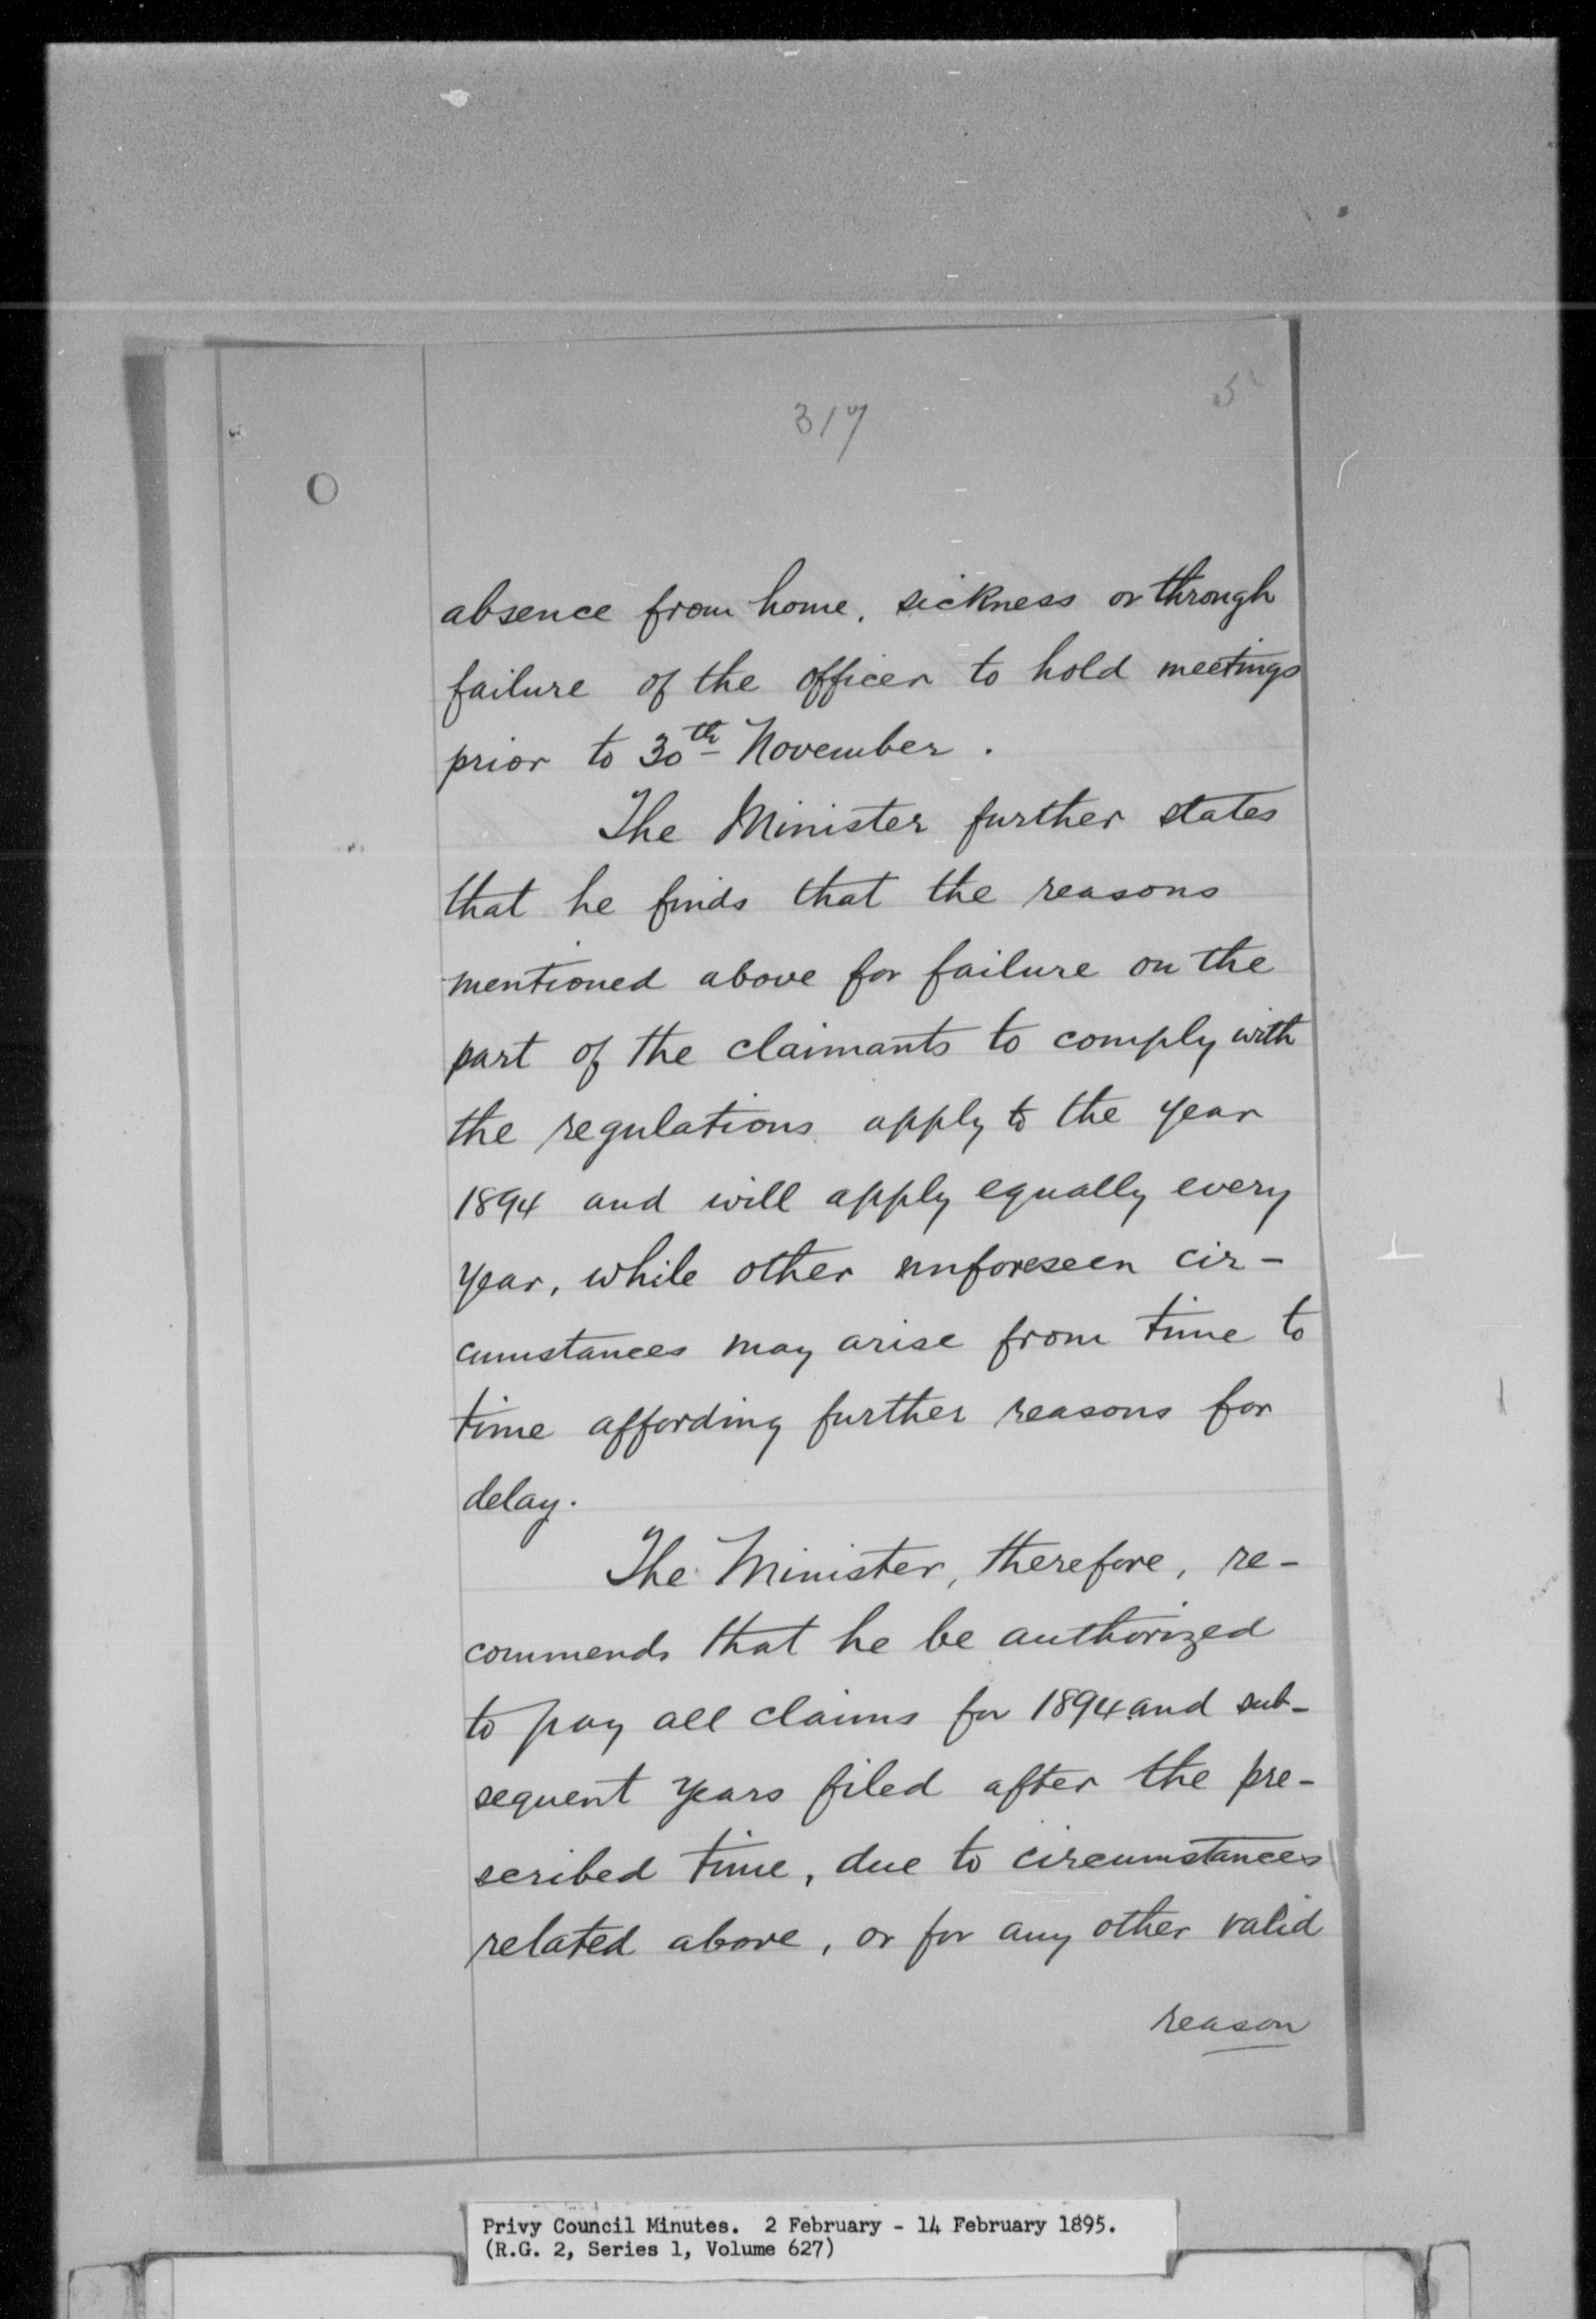 317
5
absence from home, sickness or through
failure of the officer to hold meetings
prior to 30th November.
The Minister further states
that he finds that the reasons
mentioned above for failure on the
part of the claimants to comply with
the regulations apply to the year
1894 and will apply equally every
year, while other unforeseen cir-
cumstances may arise from time to
time affording further reasons for
delay.
The Minister, therefore, re-
commends that he be authorized
to pay all claims for 1894 and sub-
sequent years filed after the pre-
scribed time, due to circumstances
related above, or for any other valid
reason
Privy Council Minutes. 2 February - 14 February 1895.
(R.G. 2, Series 1, Volume 627)